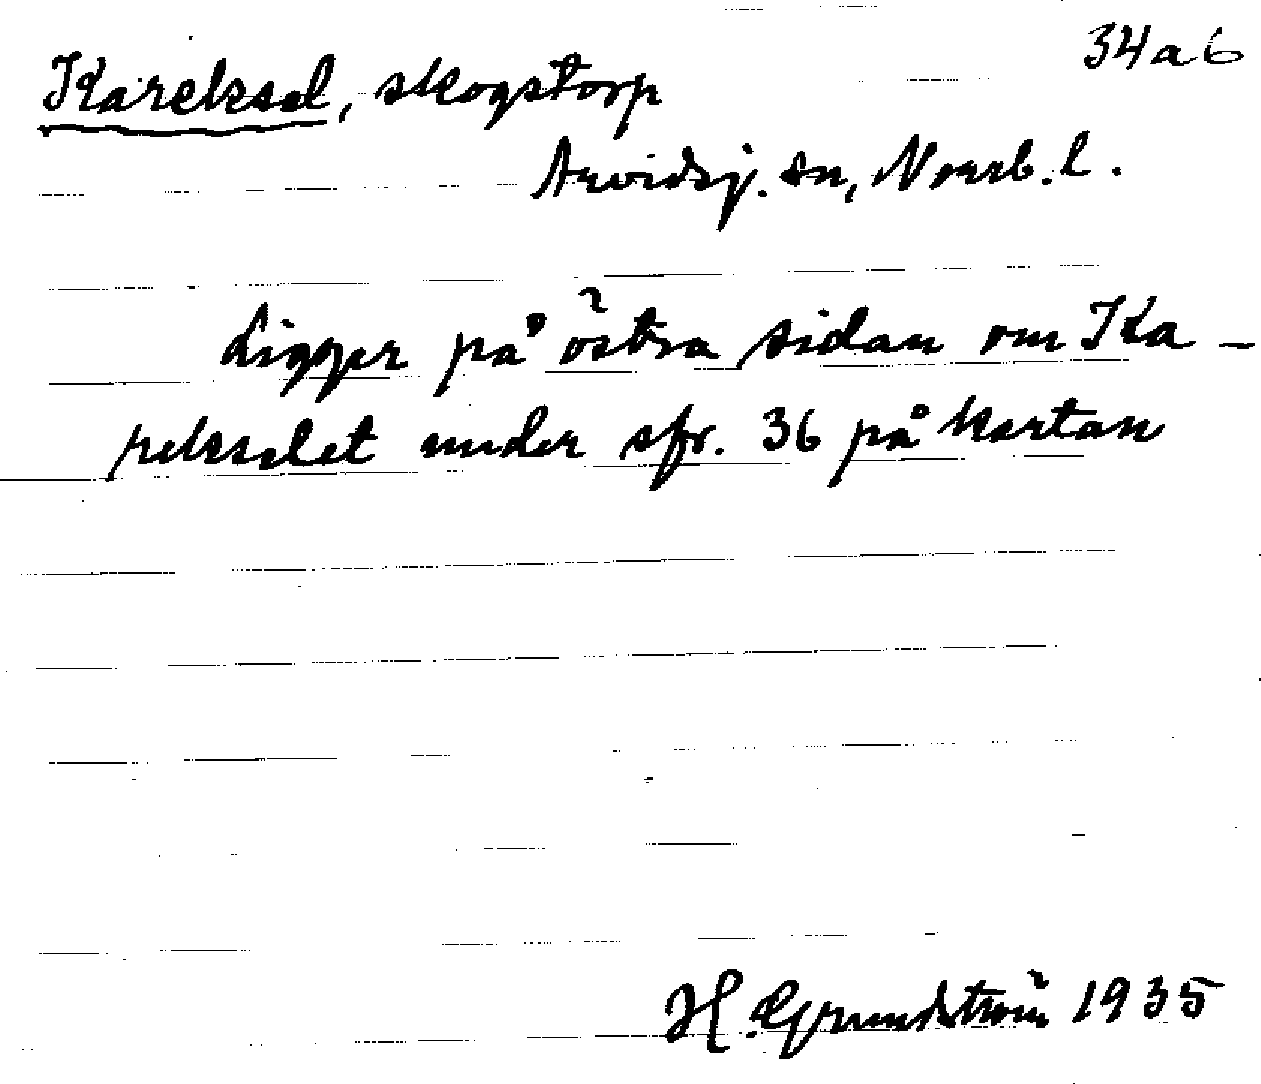 34a6
Kareksel, skogstorp
Arvidsj. sn, Norrb. l.
Ligger på östra sidan om Ka-
rekselet under sfr. 36 på kartan
H. Grundström 1935